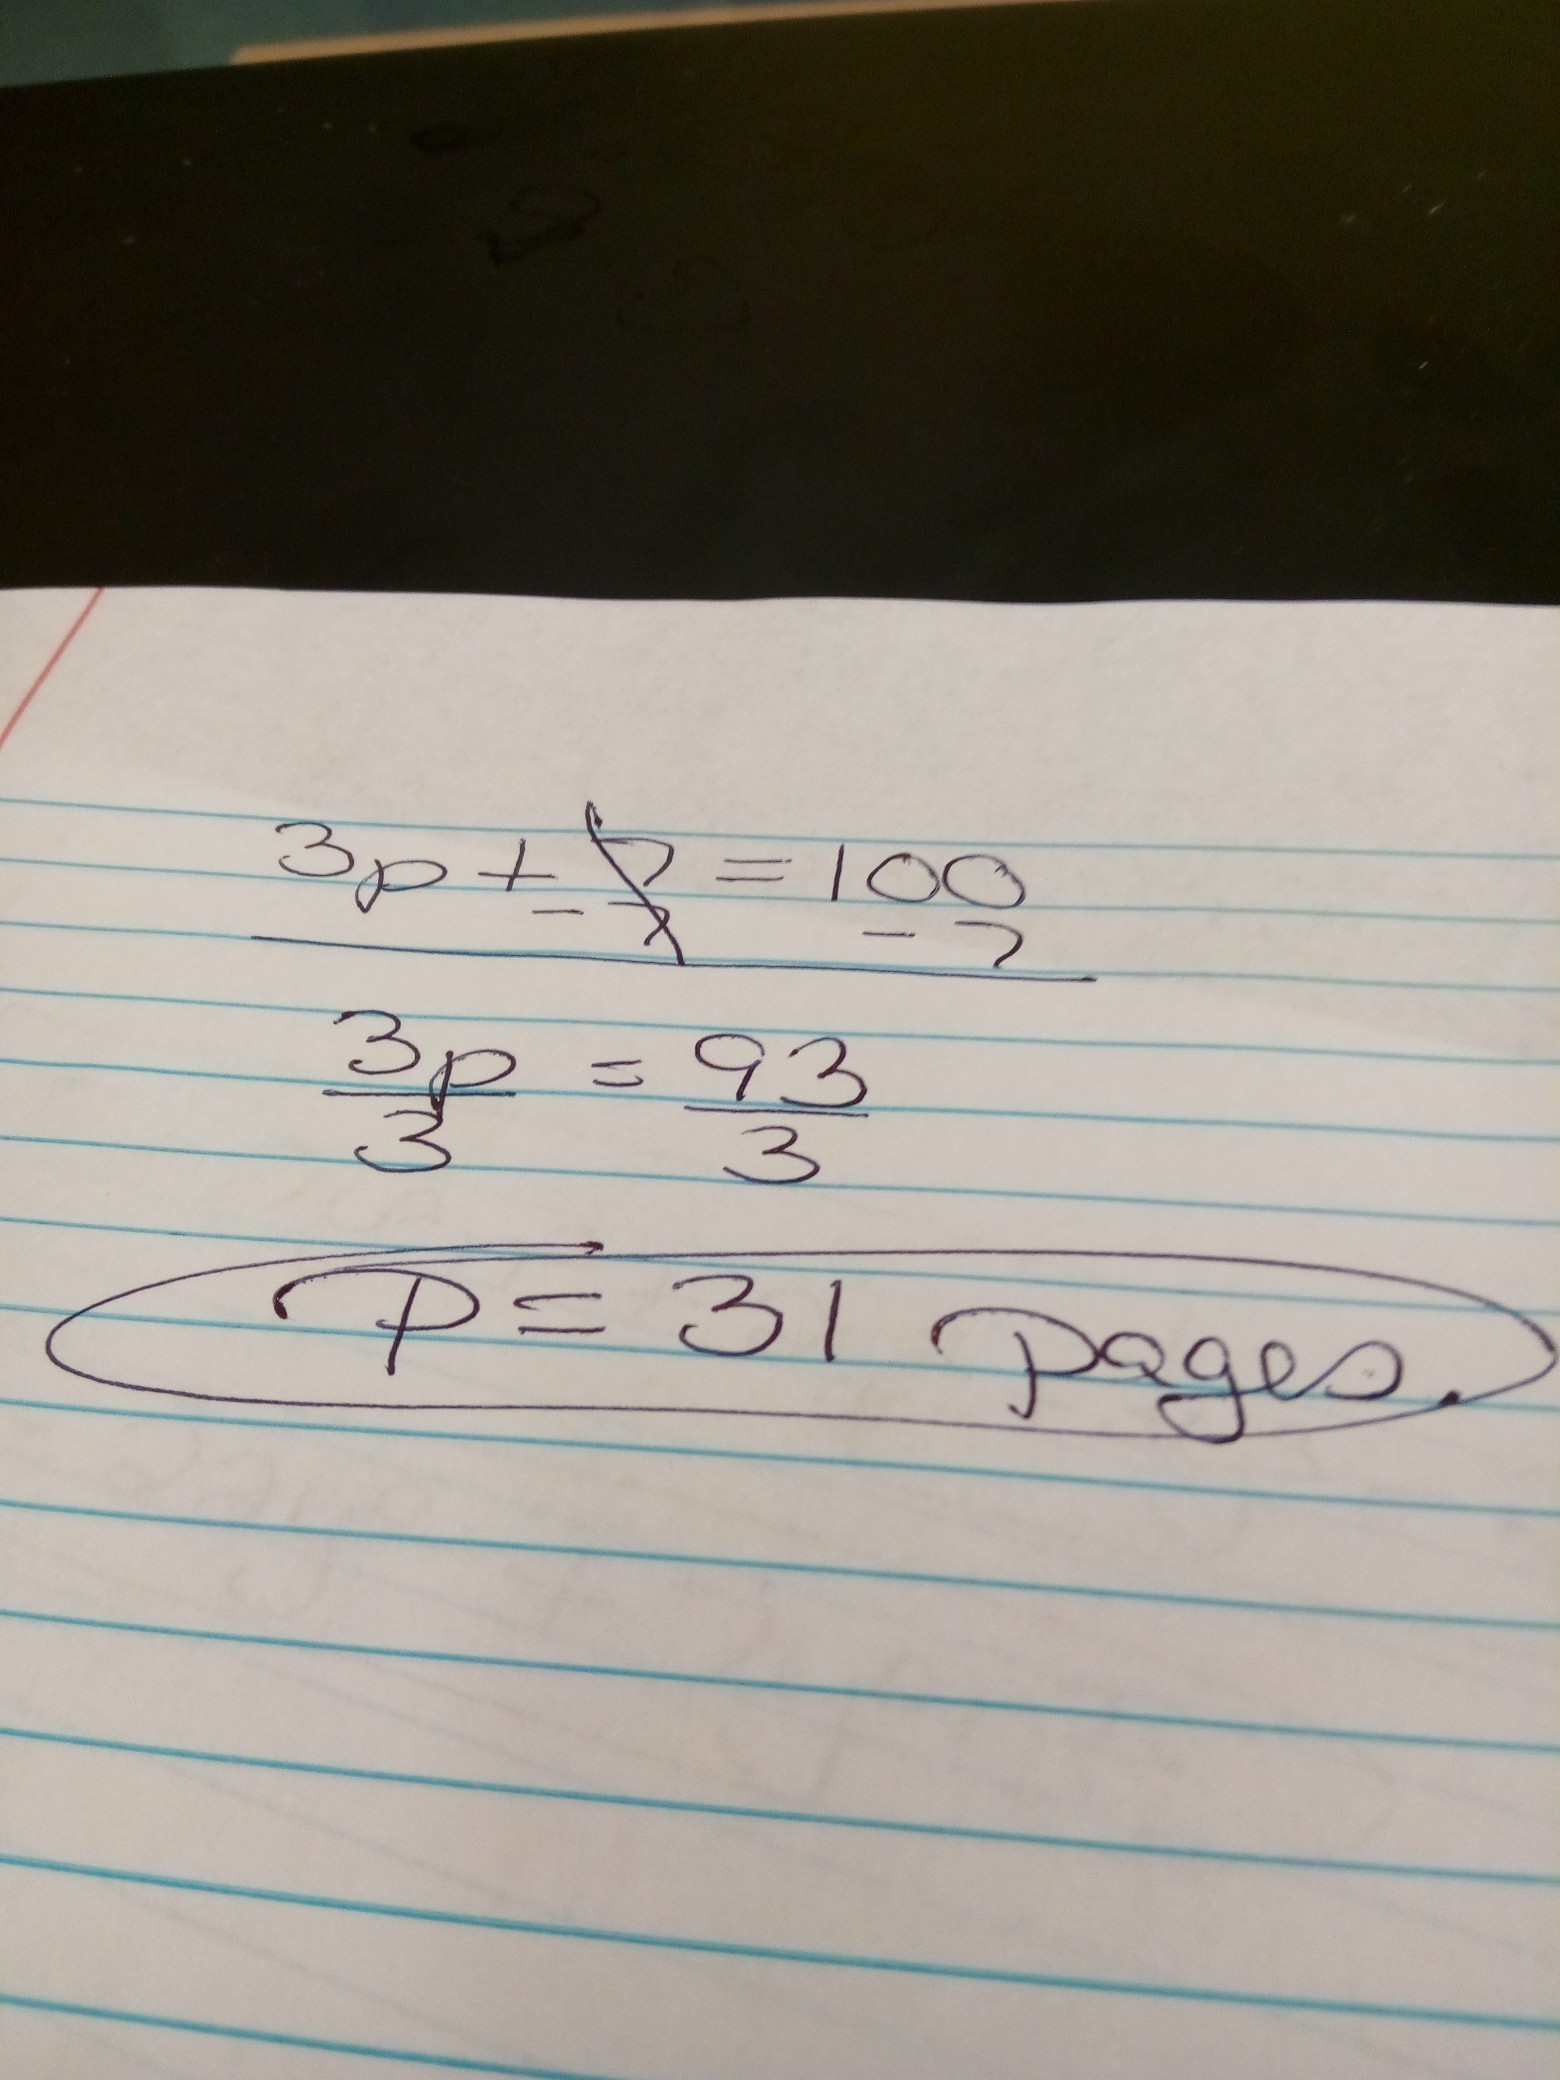 3p + 7 = 100
- 7 - 7
3p = 93
3 3
P = 31 pages.